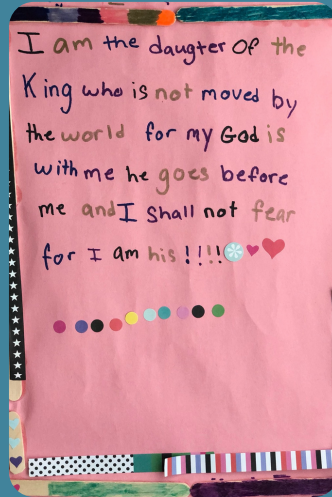 I am the daugter Of the
King who is not moved by
the world for my God is
with me he goes before
me and I Shall not fear
for I am his !!!!